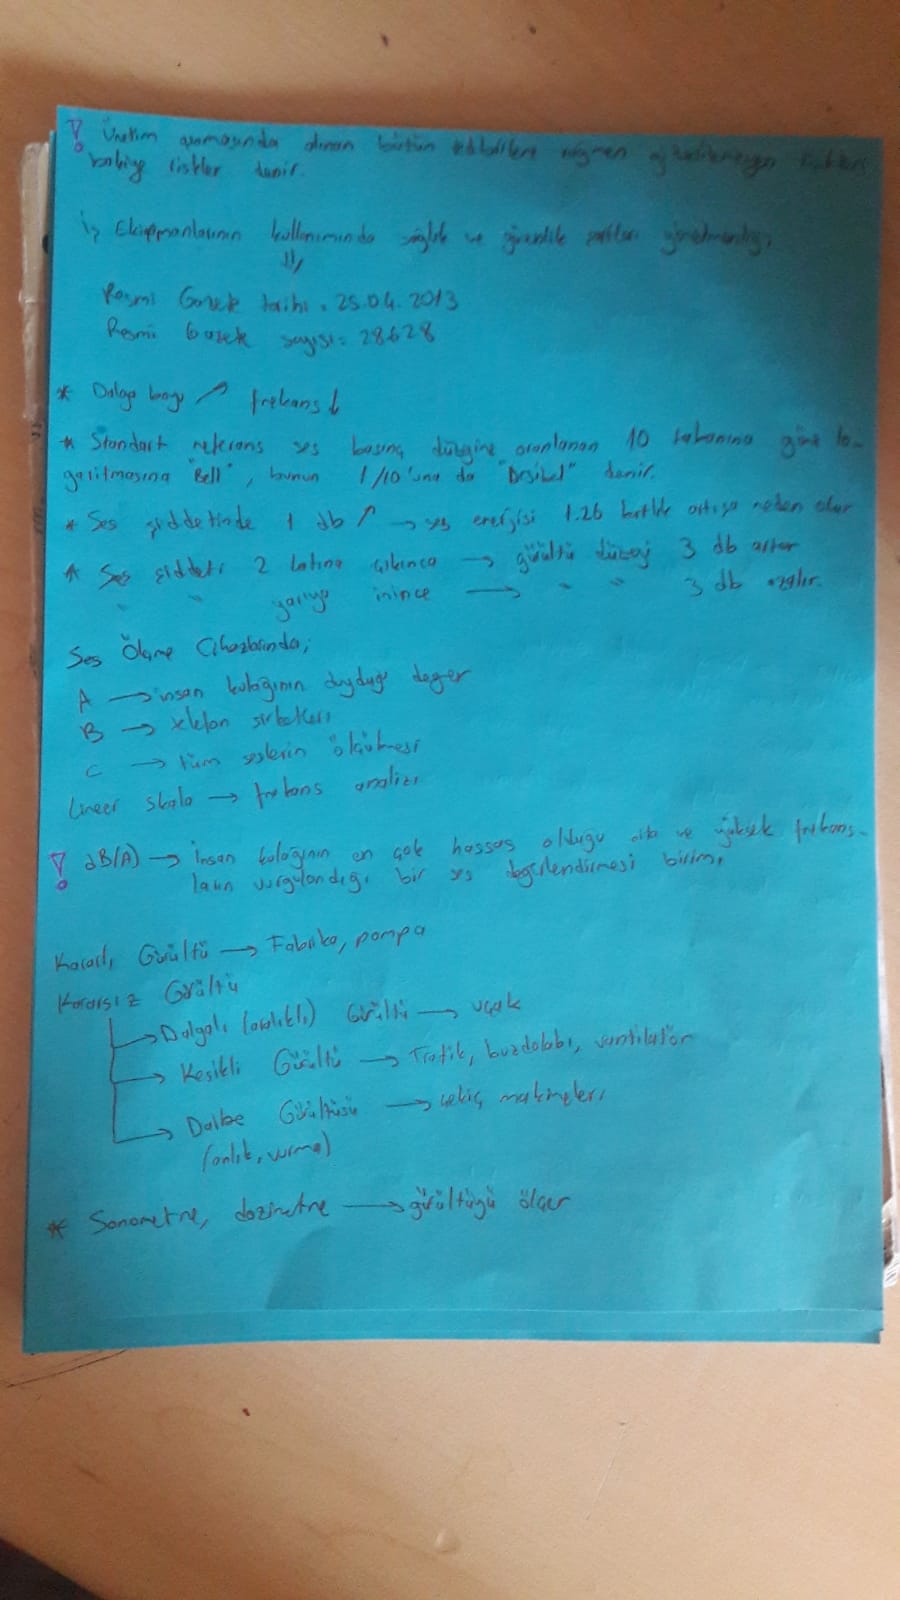 ! Üretim aşamasında alınan bütün tedbirlere rağmen riskler
bakiye riskler denir.
İş Ekipmanlarının kullanımında sağlık ve güvenlik şartları yönetmeliği;
⇓
Resmi Gazete tarihi: 25.04.2013
Resmi Gazete sayısı = 28628
* Dalga boyu ↗ frekans ↓
* Standart referans ses basınç düzeyine oranlanan 10 tabanına göre lo-
garitmasına "Bell", bunun 1/10'una da "Desibel" denir.
* Ses şiddetinde 1 db ↗ → ses enerjisi 1.26 katlık artışa neden olur
* Ses şiddeti 2 katına çıkınca → gürültü düzeyi 3 db artar
" " yarıya inince → " " 3 db azalır.
Ses Ölçme Cihazlarında;
A → insan kulağının duyduğu değer
B → telefon şirketleri
C → tüm seslerin ölçülmesi
Lineer skala → frekans analizi
! dB(A) → İnsan kulağının en çok hassas olduğu orta ve yüksek frekans-
ların vurgulandığı bir ses değerlendirmesi birimi
Kararlı Gürültü → Fabrika, pompa
Kararsız Gürültü
→ Dalgalı (aralıklı) Gürültü → uçak
→ Kesikli Gürültü → Trafik, buzdolabı, vantilatör
→ Darbe Gürültüsü → çekiç makineleri
(anlık, vurma)
* Sonometre, dozimetre → gürültüyü ölçer